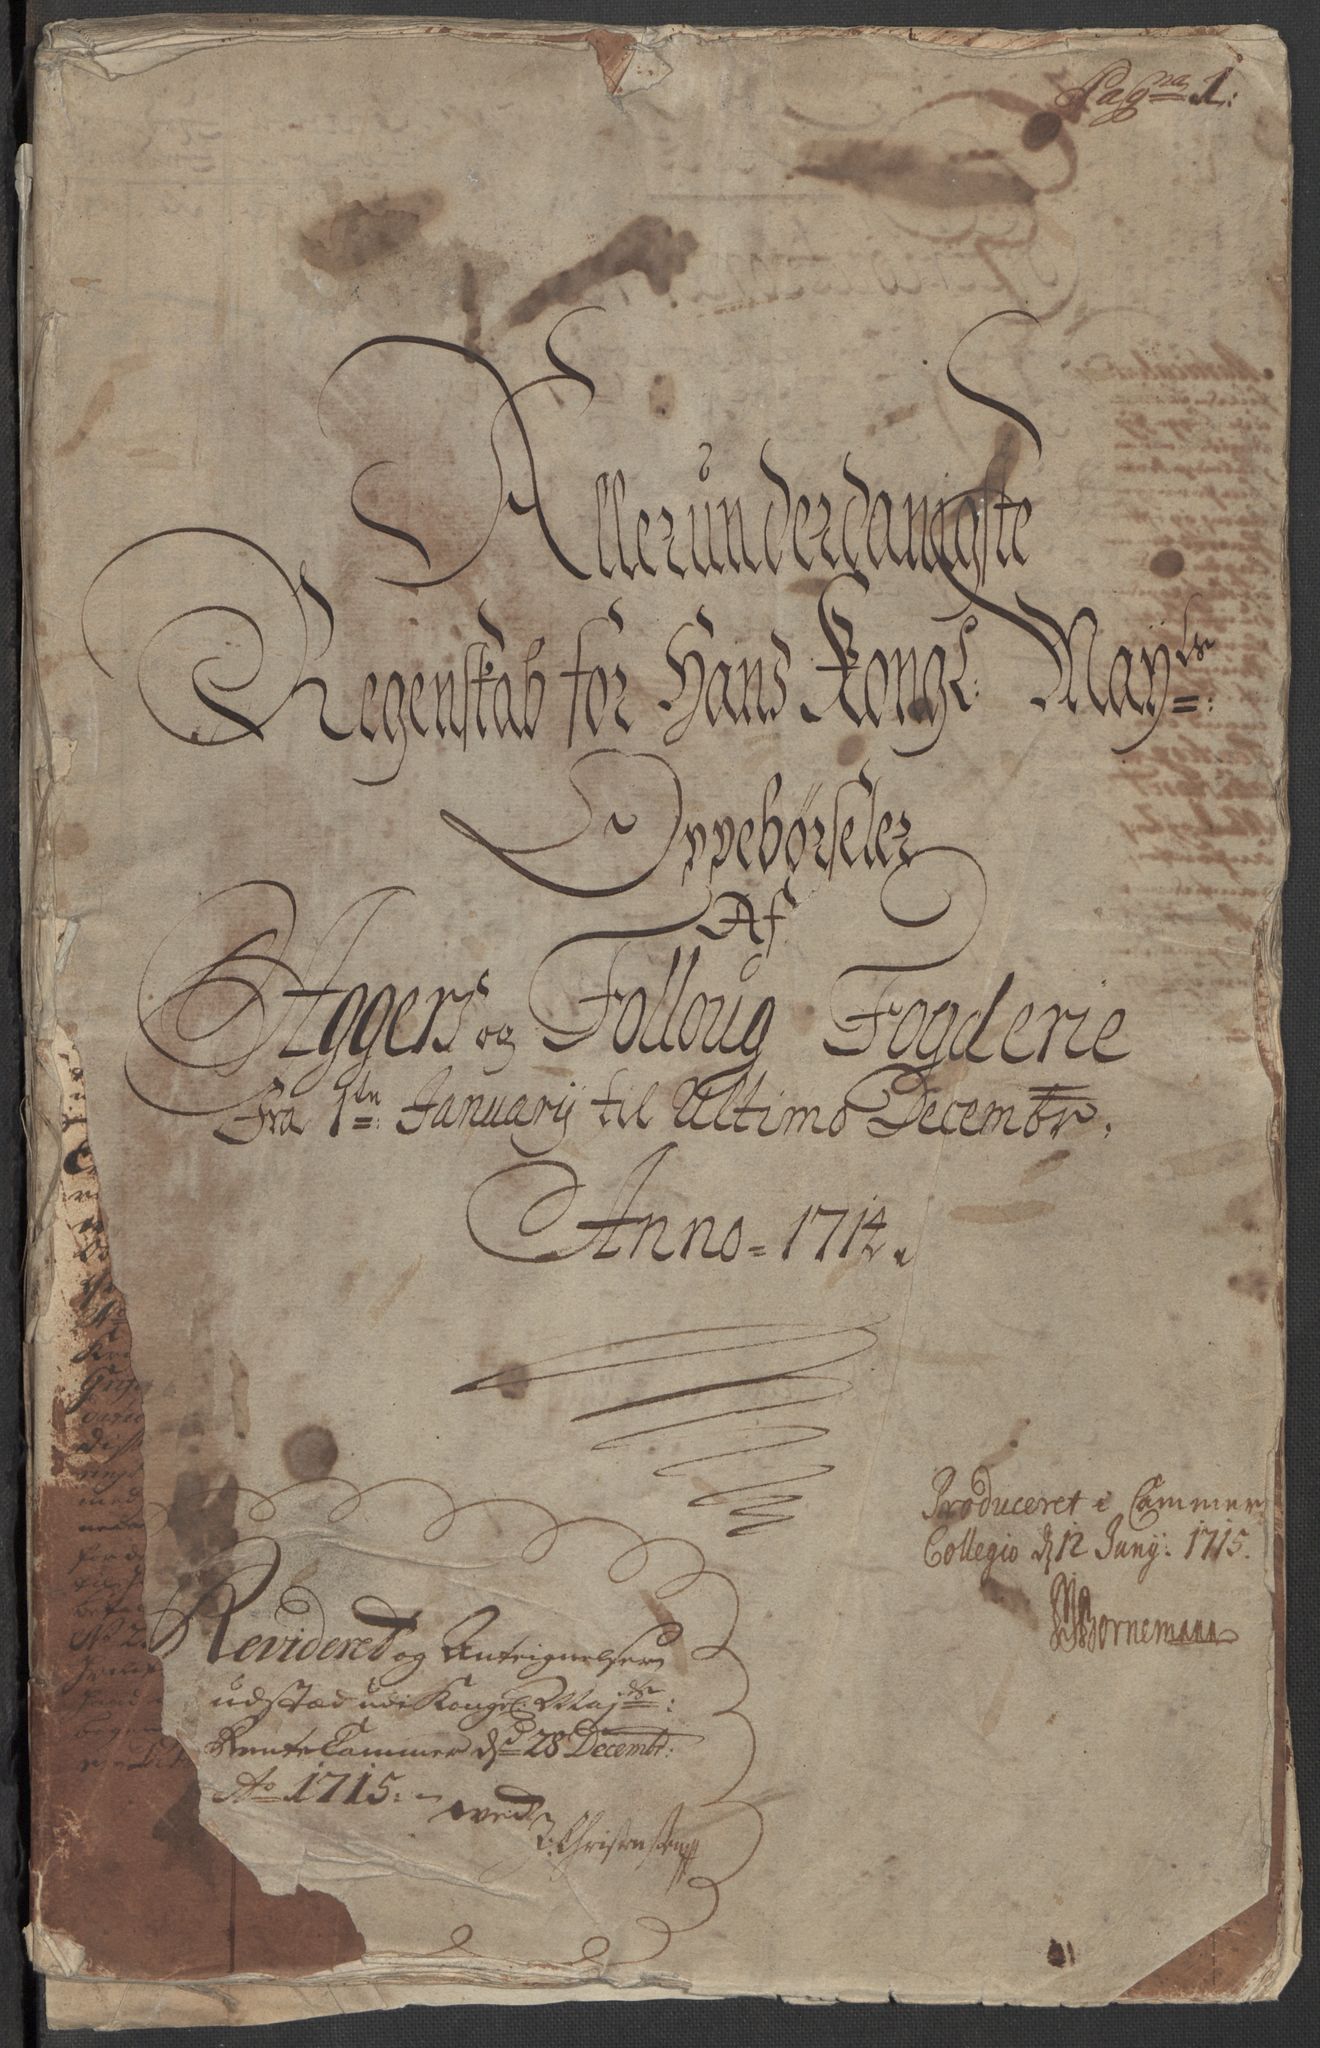 Pagna 1:
Allerunderdanigste
Regenskab for Hans Kongl: Mayts:
Oppebørseler
Af
Aggers og Folloug Fogderie
Fra 1ste: Januarij til Ultimo Decembr.
Anno = 1714.
Produceret i Cammer
Collegio d 12 Junij: 1715.
Bornemann
Revideret og Antegnelser
udstæd udi Kongl: Majts:
Rente Cammer d 28 Decembr:
Ao 1715. -
ved
J. Christensen